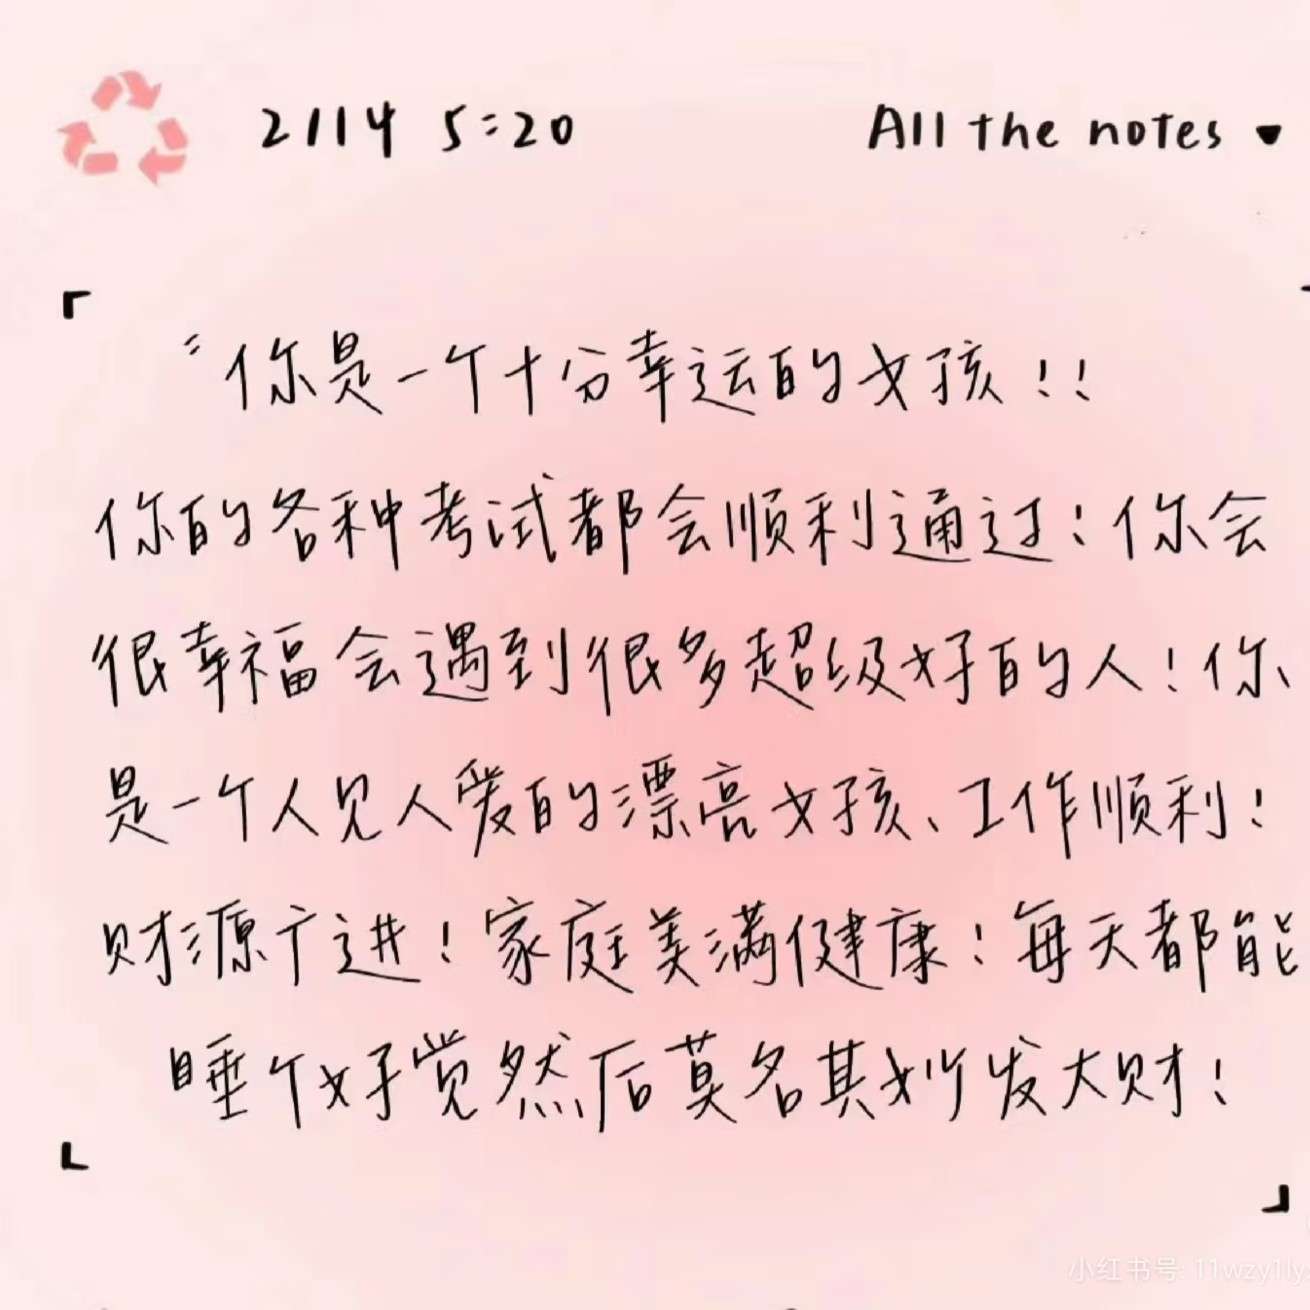 2114 5:20 All the notes
“你是一个十分幸运的女孩!!
你的各种考试都会顺利通过!你会
很幸福会遇到很多超级好的人!你
是一个人见人爱的漂亮女孩、工作顺利!
财源广进!家庭美满健康!每天都能
睡个好觉然后莫名其妙发大财!
小红书号 11wzy1ly